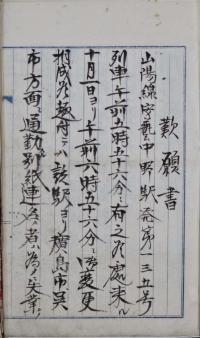 歎願書
山陽線安藝中野駅発第一三五号
列車午前五時五十六分ニ有之候處来ル
十月一日ヨリ午前六時五十六分ニ御変更
相成候趣ニテハ該駅ヨリ廣島市呉
市方面ニ通勤別紙連名者ハ為ノ失業